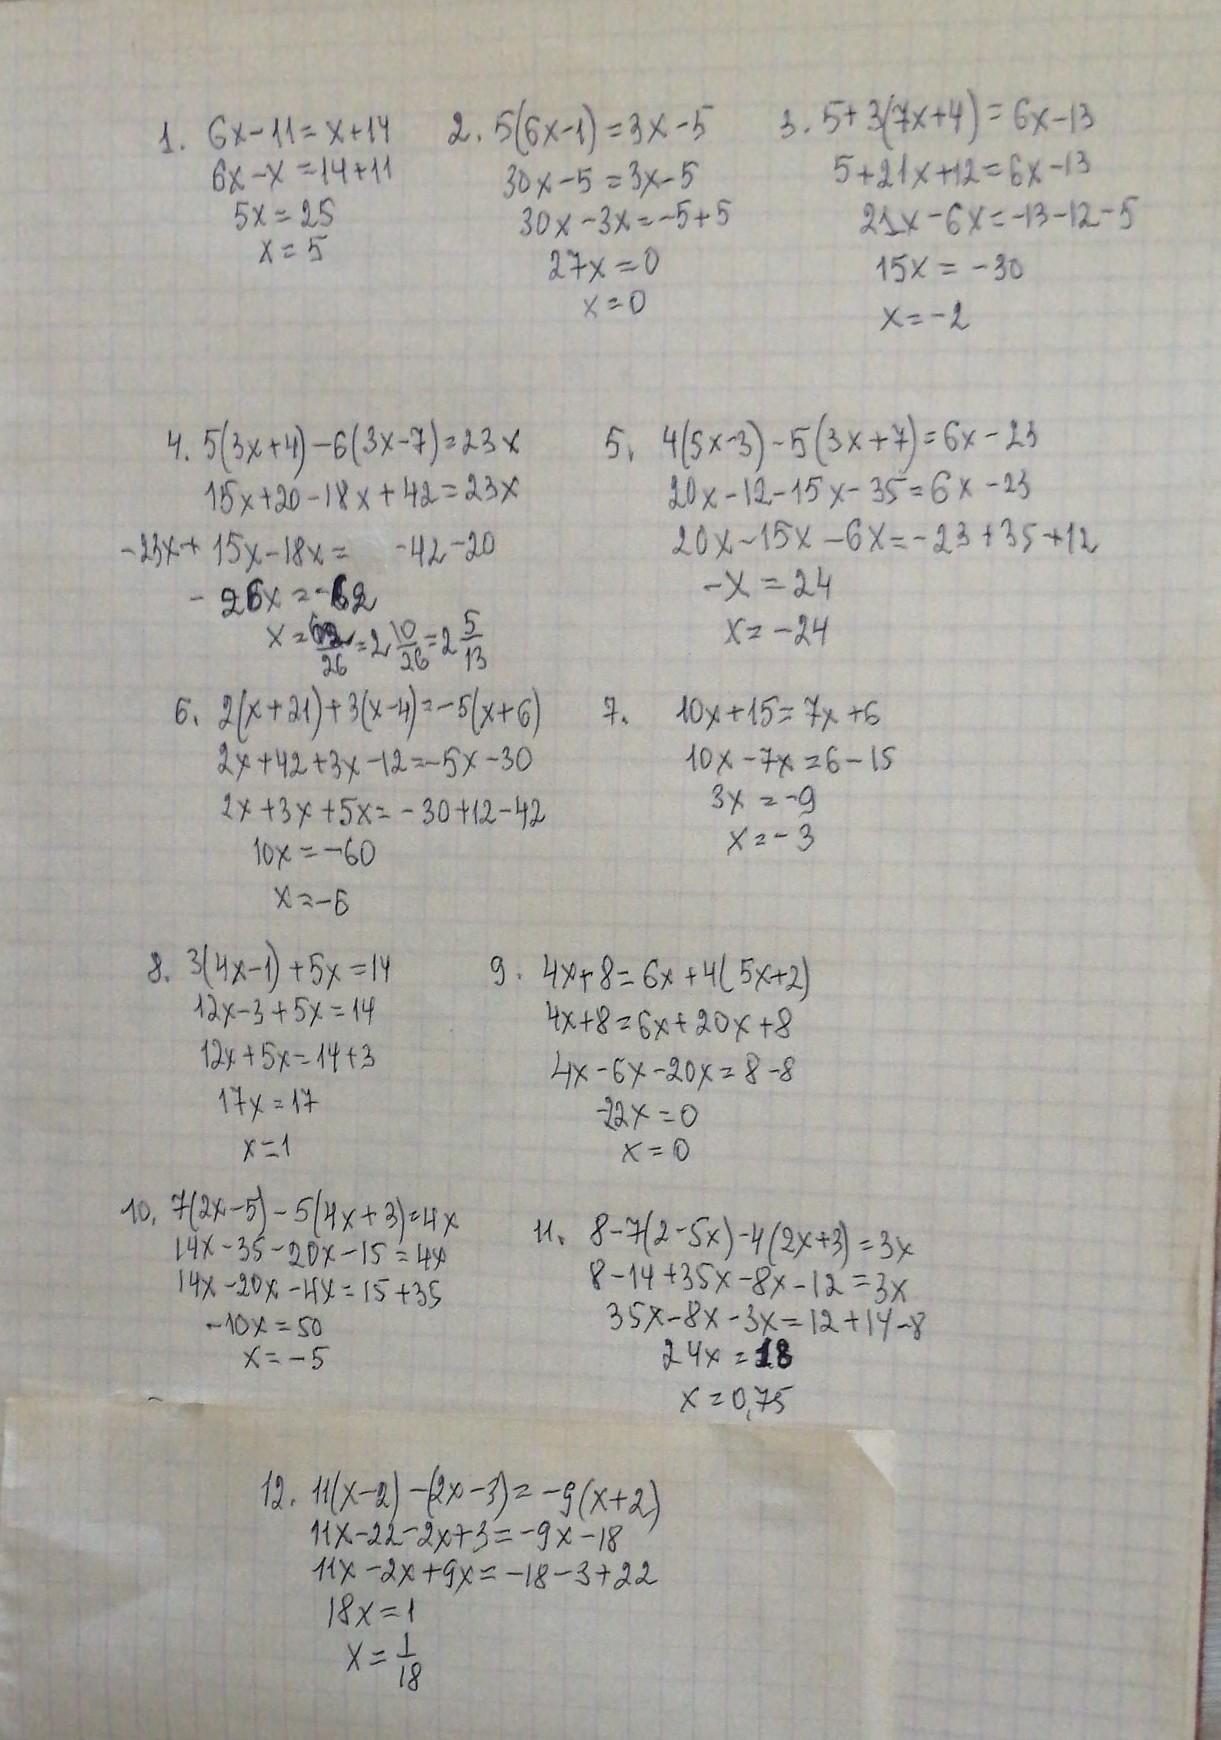 1. 6x-11=x+14
6x-x=14+11
5x=25
x=5
2. 5(6x-1)=3x-5
30x-5=3x-5
30x-3x=-5+5
27x=0
x=0
3. 5+3(7x+4)=6x-13
5+21x+12=6x-13
21x-6x=-13-12-5
15x=-30
x=-2
4. 5(3x+4)-6(3x-7)=23x
15x+20-18x+42=23x
-23x+15x-18x= -42-20
-26x=-62
x=62/26=2 10/26=2 5/13
5. 4(5x-3)-5(3x+7)=6x-23
20x-12-15x-35=6x-23
20x-15x-6x=-23+35+12
-x=24
x=-24
6. 2(x+21)+3(x-4)=-5(x+6)
2x+42+3x-12=-5x-30
2x+3x+5x=-30+12-42
10x=-60
x=-6
7. 10x+15=7x+6
10x-7x=6-15
3x=-9
x=-3
8. 3(4x-1)+5x=14
12x-3+5x=14
12x+5x=14+3
17x=17
x=1
9. 4x+8=6x+4(5x+2)
4x+8=6x+20x+8
4x-6x-20x=8-8
-22x=0
x=0
10. 7(2x-5)-5(4x+3)=4x
14x-35-20x-15=4x
14x-20x-4x=15+35
-10x=50
x=-5
11. 8-7(2-5x)-4(2x+3)=3x
8-14+35x-8x-12=3x
35x-8x-3x=12+14-8
24x=18
x=0,75
12. 11(x-2)-(2x-3)=-9(x+2)
11x-22-2x+3=-9x-18
11x-2x+9x=-18-3+22
18x=1
x=1/18